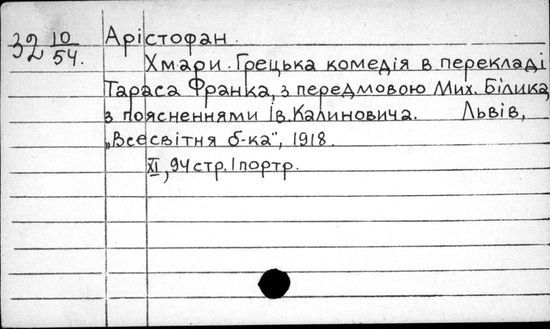 32 10/54.
Арістофан.
Хмари. Грецька комедія в перекладі
Тараса Франка, з передмовою Мих. Білика,
з поясненнями Ів. Калиновича. Львів,
„Всесвітня б-ка", 1918.
XI, 94 стр. 1 портр.